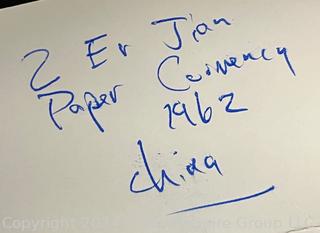 2 Er Jian
Paper Currency
1962
China
Copyright 20 re Group LLC